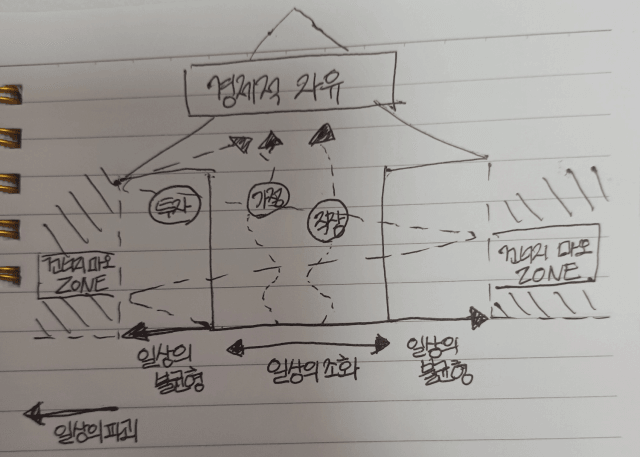 경제적 자유
투자
가정
직장
건너지 마오
ZONE
건너지 마오
ZONE
일상의
불균형
일상의 조화
일상의
불균형
일상의 파괴